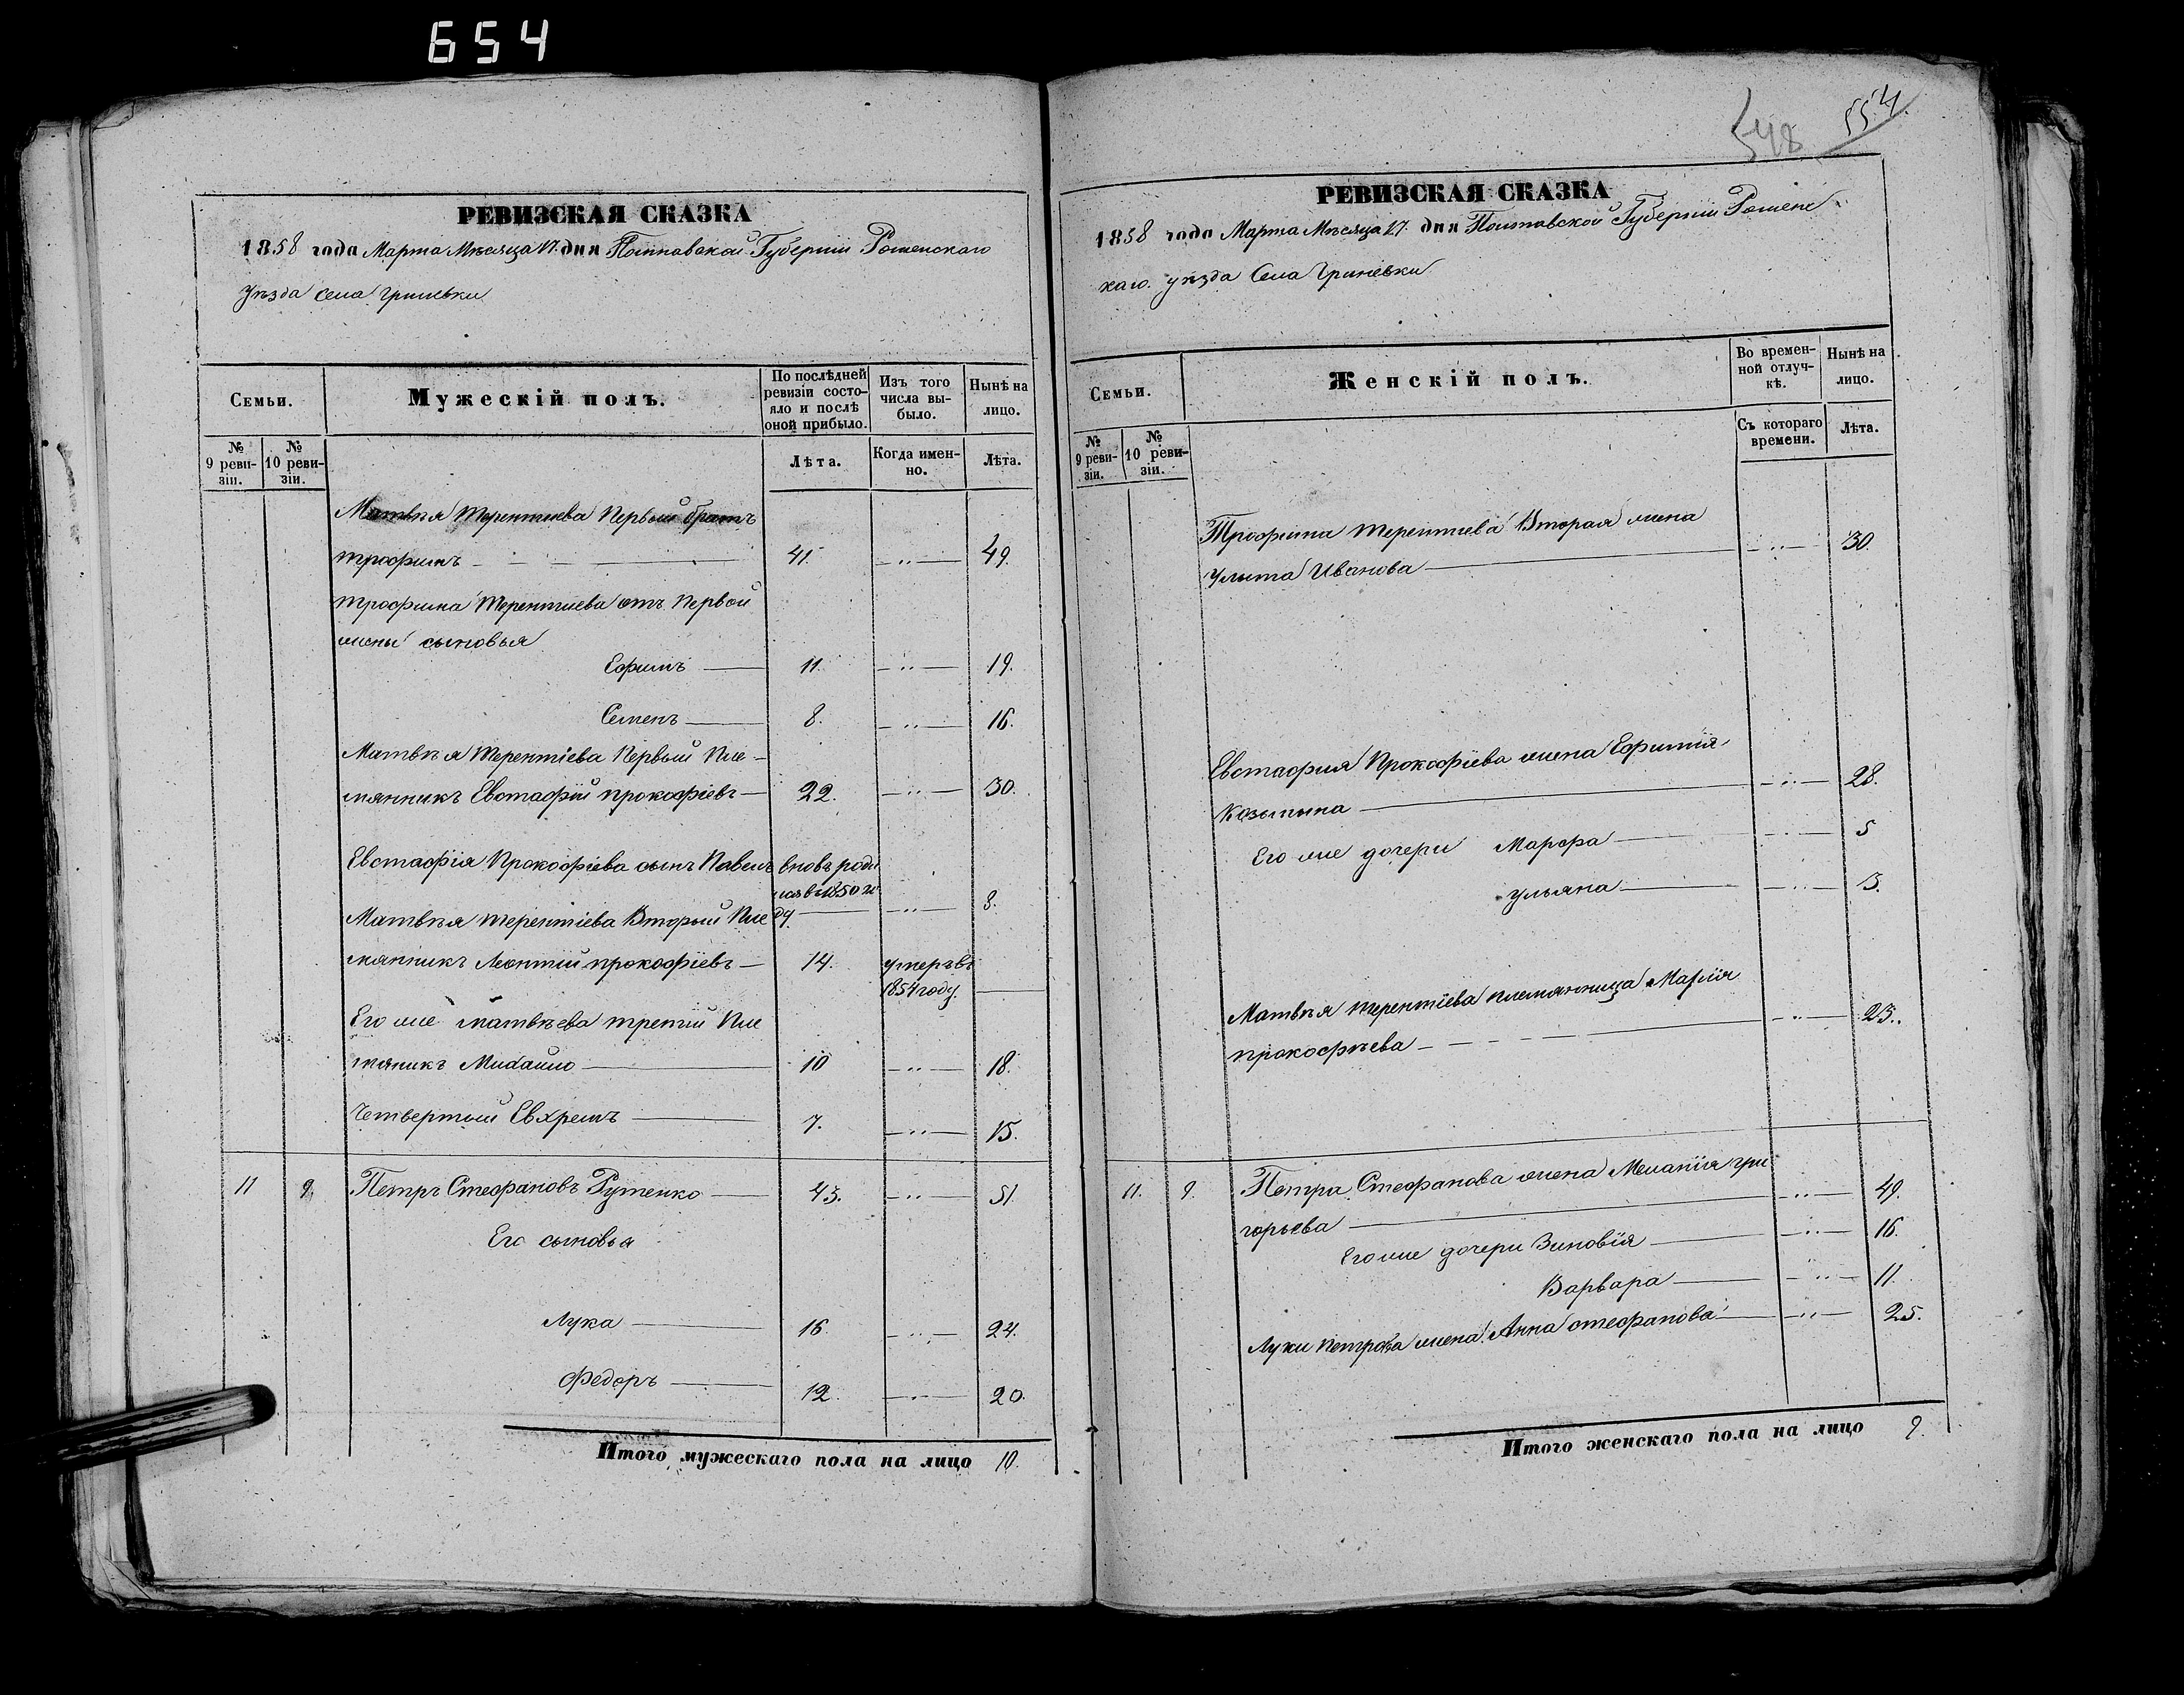 654
РЕВИЗСКАЯ СКАЗКА
1858 года Марта Мѣсяца 17. дня Полтавской Губерніи Роменскаго
уѣзда Села Гриневки
Семьи.
Мужескій полъ.
По послѣдней ревизіи состояло и послѣ оной прибыло.
Изъ того числа выбыло.
Нынѣ на лицо.
№ 9 ревизіи.
№ 10 ревизіи.
Лѣта.
Когда именно.
Лѣта.
Матвѣя Терентиева Первый братъ
трофимъ 41. 49.
трофима Терентиева отъ Первой
жены сыновья
Ефимъ 11. 19.
Семенъ 8. 16.
Матвѣя Терентіева Первый Пле-
мянникъ Евстафій прокофіевъ 22. 30.
Евстафія Прокофіева сынъ Павелъ вновь роди
лся въ 1850 го
ду 8.
Матвѣя терентіева Вторый Пле
мянникъ Леонтій прокофіевъ 14. умеръ въ
1854 году.
Его же матвѣева третій Пле
мяникъ Михайло 10 18.
Четвертый Евхремъ 7. 15.
11 9. Петръ Стефановъ Руденко 43. 51.
Его сыновья
Лука 16. 24.
Федоръ 12. 20.
Итого мужескаго пола на лицо 10.
548 554.
РЕВИЗСКАЯ СКАЗКА
1858 года Марта Мѣсяца 17. дня Полтавской Губерніи Роменс
каго. уѣзда Села Гриневки
Семьи.
Женскій полъ.
Во временной отлучкѣ.
Нынѣ на лицо.
№ 9 ревизіи.
№ 10 ревизіи.
Съ котораго времени.
Лѣта.
Трофима терентиева Вторая жена
Улита Иванова 30.
Евстафия Прокофіева жена Ефимія
Козьмина 28.
Его же дочери Марфа 5
ульяна 3.
Матвѣя терентіева племянница Марія
прокофѣева 23.
11. 9. Петра Стефанова жена Меланія гри
горьева 49.
Его же дочери Зиновія 16.
Варвара 11.
Луки Петрова жена Анна стефанова 25.
Итого женскаго пола на лицо 9.